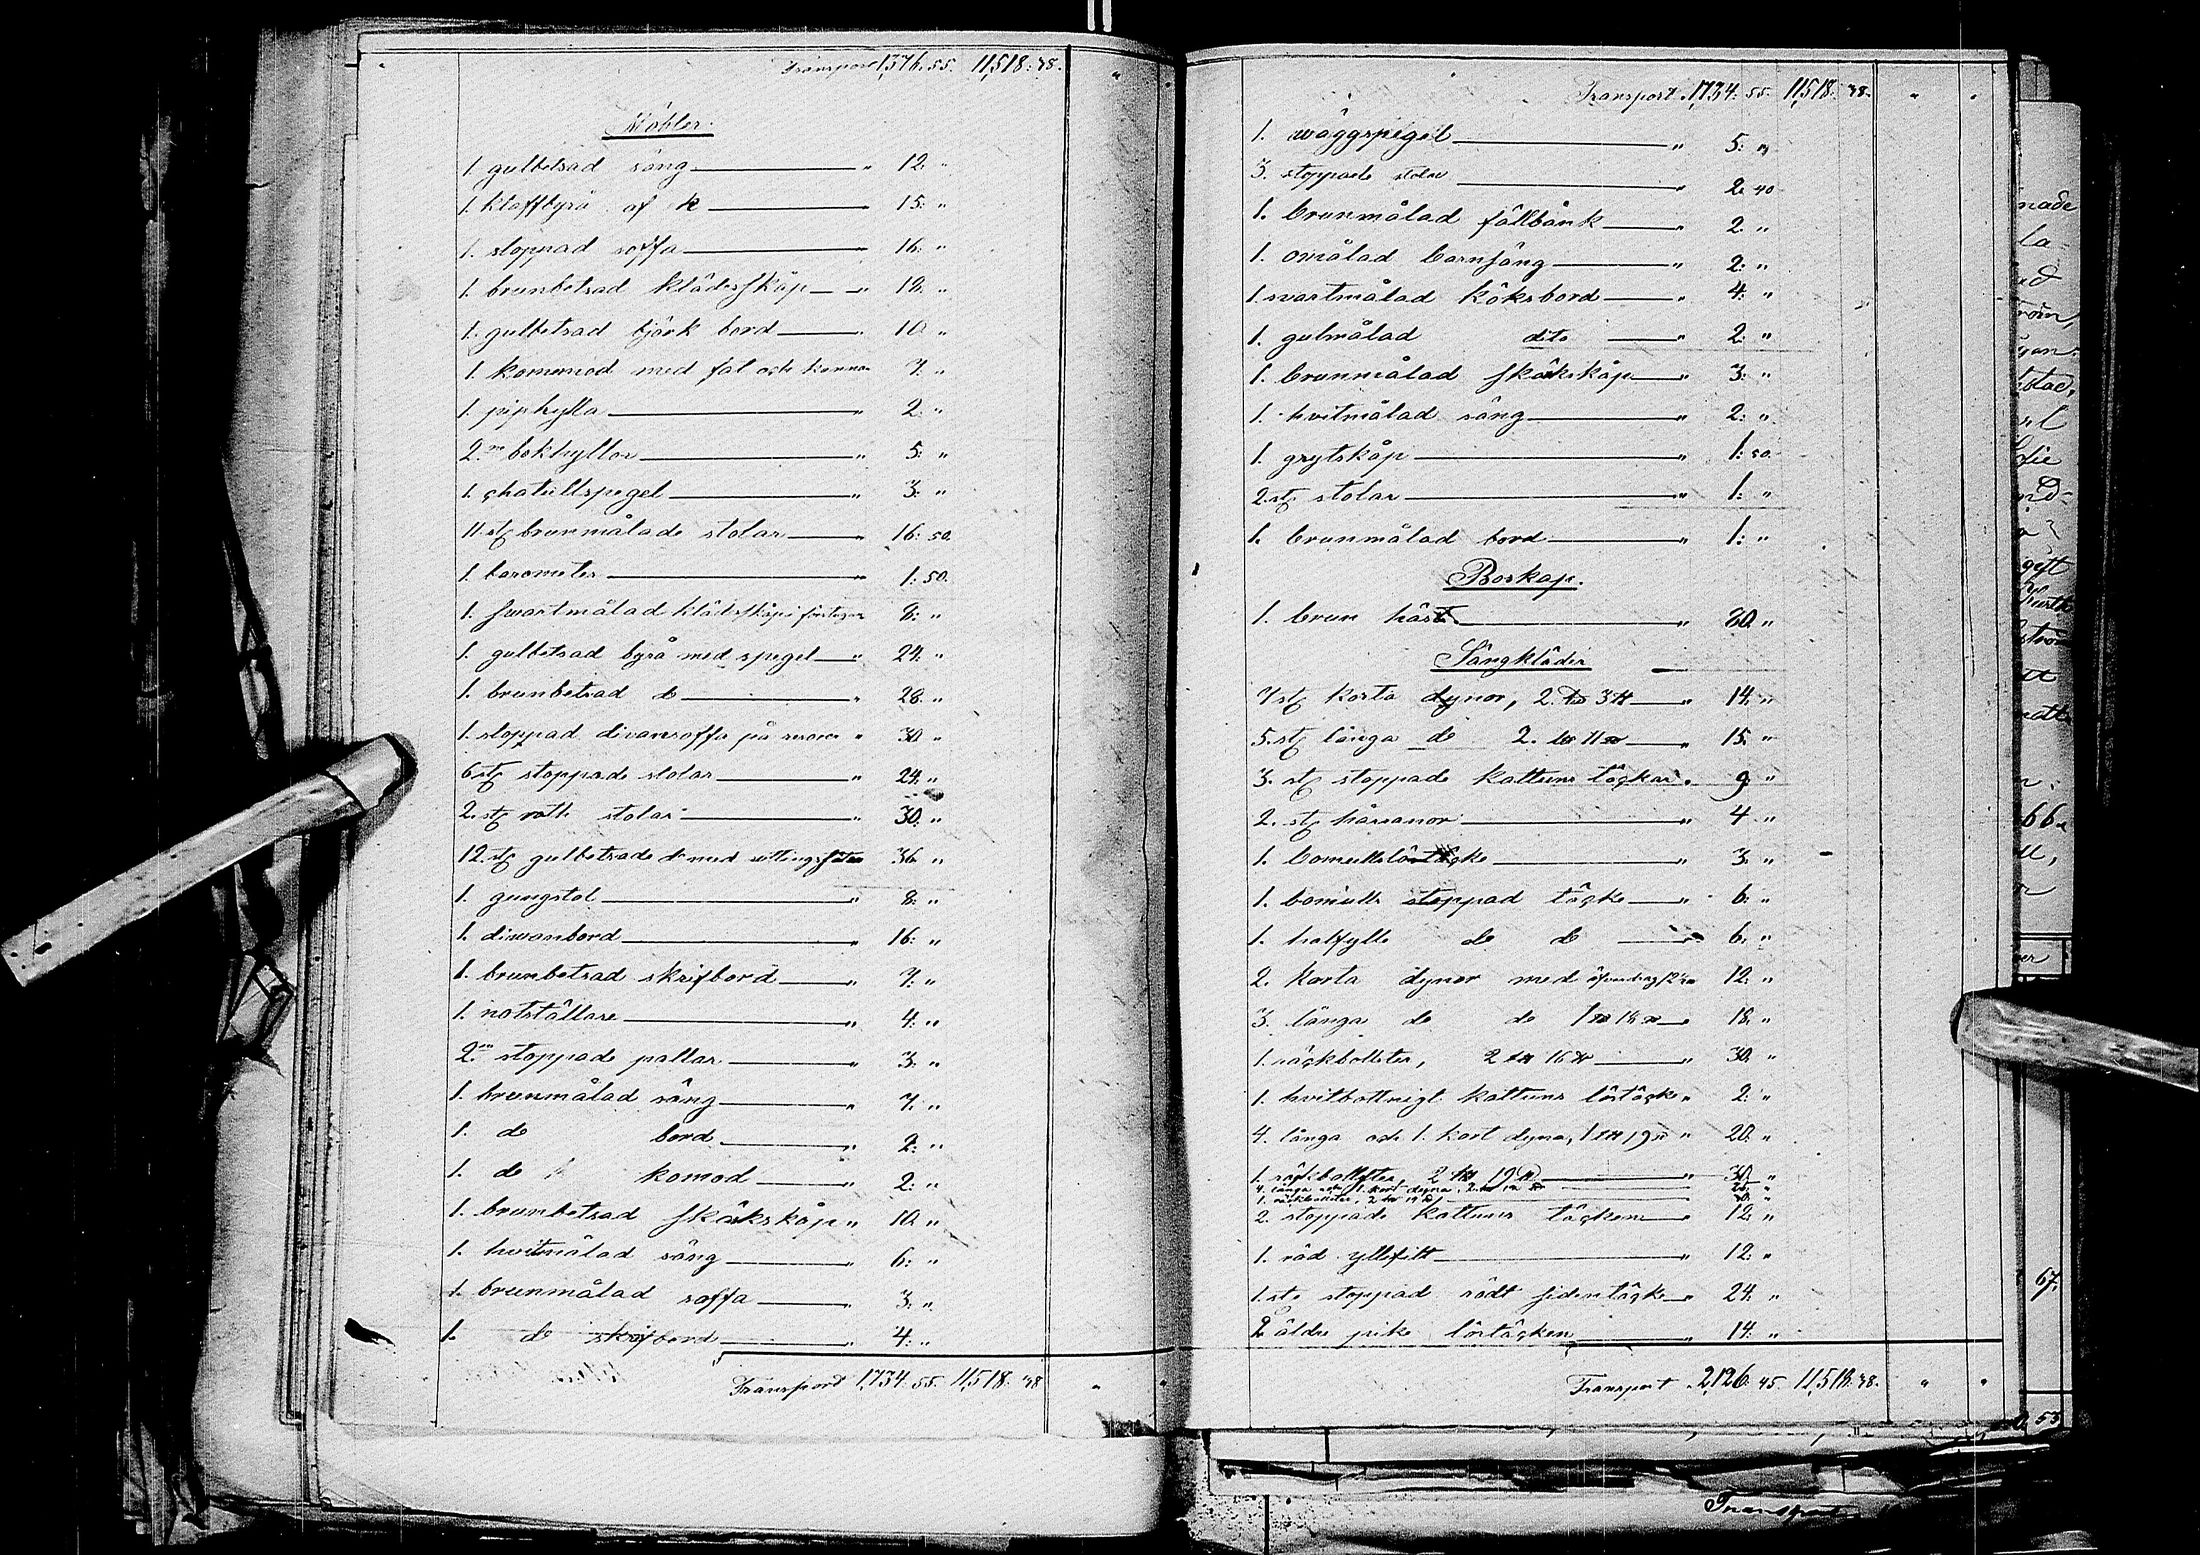 Transport 1,376. 55. 11,518. 38.
Möbler.
1. gulbetsad säng " 12. "
1. klaffbyrå af " 15. "
1. stoppad soffa " 16. "
1. brunbetsad klädesskåp " 12. "
1. gulbetsad björk bord " 10 "
1. kommod med fat och kanna 7. "
1. piphylla " 2. "
2. bokhyllor " 5. "
1. chatullspegel " 3. "
11. st. brunmålade stolar " 16. 50.
1. barometer " 1. 50.
1. svartmålad klädesskåp i förstugan 8. "
1. gulbetsad byrå med spegel " 24. "
1. brunbetsad do " 28. "
1. stoppad divansoffa på " 30. "
6 st. stoppade stolar " 24. "
2. st. stolar " 30. "
12. st. gulbetsade do med " 36. "
1. gungstol " 8. "
1. divanbord " 16. "
1. brunbetsad skrifbord " 7. "
1. notställare " 4. "
2. stoppade pallar " 3. "
1. brunmålad säng " 7. "
1. do bord " 2. "
1. do komod " 2. "
1. brunbetsad skänkskåp " 10. "
1. hvitmålad säng " 6. "
1. brunmålad soffa " 3. "
1. do skrifbord " 4. "
Transport 1,734. 55. 11,518. 38 " "
Transport 1,734. 55. 11,518. 38. " "
1. wäggspegel " 5. "
3. stoppade stolar " 2. 40
1. brunmålad fällbänk " 2. "
1. omålad barnsäng " 2. "
1. svartmålad köksbord " 4. "
1. gulmålad dito " 2. "
1. brunmålad skänkskåp " 3. "
1. hvitmålad säng " 2. "
1. grytskåp " 1. 50.
2. st. stolar " 1. "
1. brunmålad bord " 1. "
Boskap.
1. brun häst " 80. "
Sängkläder
7 st. korta dynor, 2. 3 " 14. "
5. st. långa do 2. 11 " 15. "
3. st. stoppade kattuns täcken " 9 "
2. st. " 4 "
1. bomullslöstäcke " 3. "
1. bomulls stoppad täcke " 6. "
1. halfylle do do " 6. "
2. korta dynor med 12. "
3. långa do do 1 18 " 18. "
1. säckbolster, 2 16 " 30. "
1. hvitbottnigt kattuns löstäcke " 2. "
4. långa och 1. kort dyna, 1 19 " 20. "
1. säckbolster, 2 19 " 30. "
4. långa och 1. kort dyna, 2 "
1. säckbolster, 2 19 "
2. stoppade kattuns täcken " 12. "
1. röd yllefilt " 12. "
1. st. stoppad rödt sidentäcke " 24. "
2 äldre pike löstäcken " 14. "
Transport 2,126. 45. 11,518. 38. " "
nade
la-
ad
röm,
stad,
rl
fie
nd-
gift
ström
66
67.
53
Transport